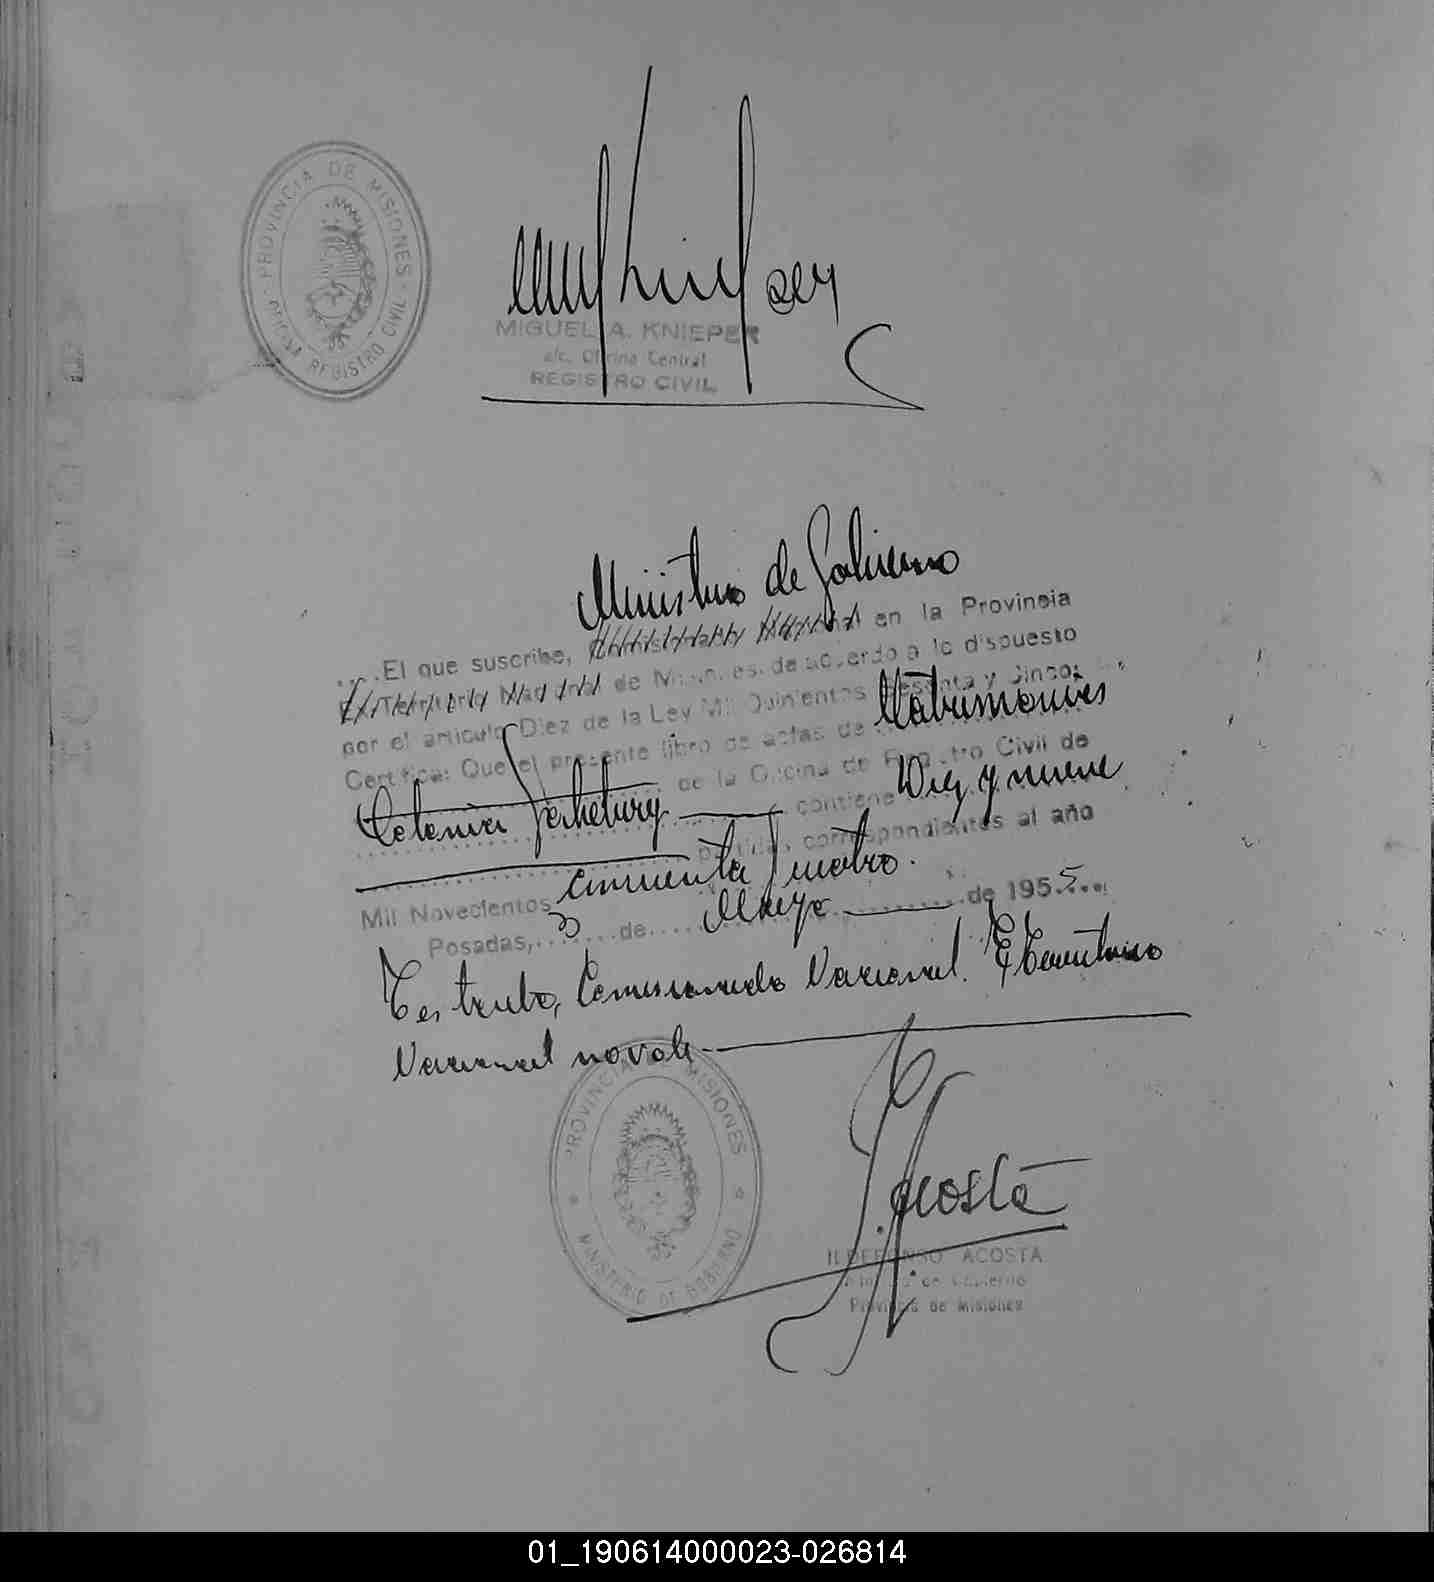 PROVINCIA DE MISIONES
OFICINA REGISTRO CIVIL
MIGUEL A. KNIEPER
a/c. Oficina Central
REGISTRO CIVIL
Ministro de Gobierno
El que suscribe, en la Provincia
de Misiones, de acuerdo a lo dispuesto
por el artículo Diez de la Ley Mil Quinientos Sesenta y Cinco;
Certifica: Que el presente libro de actas de Matrimonios
de la Oficina de Registro Civil de
Colonia contiene Diez y nueve
partidas correspondientes al año
Mil Novecientos cincuenta y cuatro.
Posadas, 3 de Mayo de 1955
Testado, Comisionado Nacional. El Territorio
Nacional no vale
PROVINCIA DE MISIONES
MINISTERIO DE GOBIERNO
I. Acosta
ILDEFONSO ACOSTA
Ministro de Gobierno
Provincia de Misiones
01_190614000023-026814